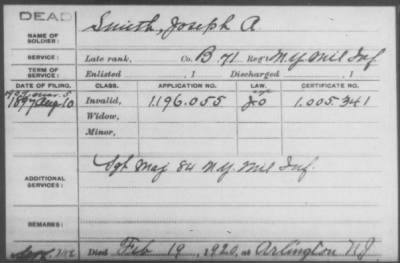 DEAD
NAME OF SOLDIER: Smith, Joseph A.
SERVICE: Late rank, Co. B 71 Reg't N.Y. Mil Inf
TERM OF SERVICE: Enlisted , 1 Discharged , 1
DATE OF FILING. CLASS. APPLICATION NO. LAW. CERTIFICATE NO.
1897 Aug 10 Invalid, 1.196.055 1.005.341
Widow,
Minor,
ADDITIONAL SERVICES: Sgt Maj 84 N.Y. Mil Inf.
REMARKS:
Died Feb 19, 1920, at Arlington NJ